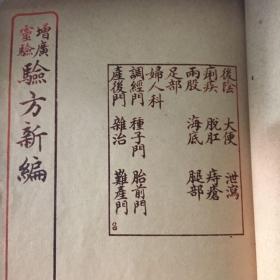 後陰 大便 泄瀉
痢疾 脫肛 痔瘡
兩股 海底 腿部
足部
婦人科
調經門 種子門 胎前門
產後門 雜治 難產門
增廣
靈驗
驗方新編